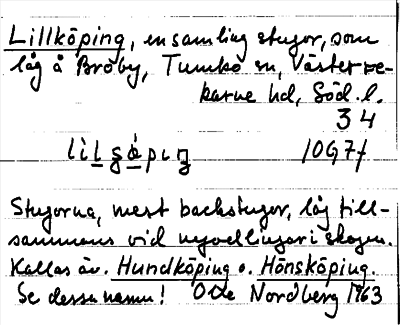 Lillköping, en samling stugor, som
låg å Bröby, Tumbo sn, Västerre-
karne hd, Söd. l.
34
lilsåpiŋ 10G7f
Stugorna, mest backstugor, låg till-
sammans vid nyodlingar i skogen.
Kallas äv. Hundköping o. Hönsköping.
Se dessa namn! Otto Nordberg 1963